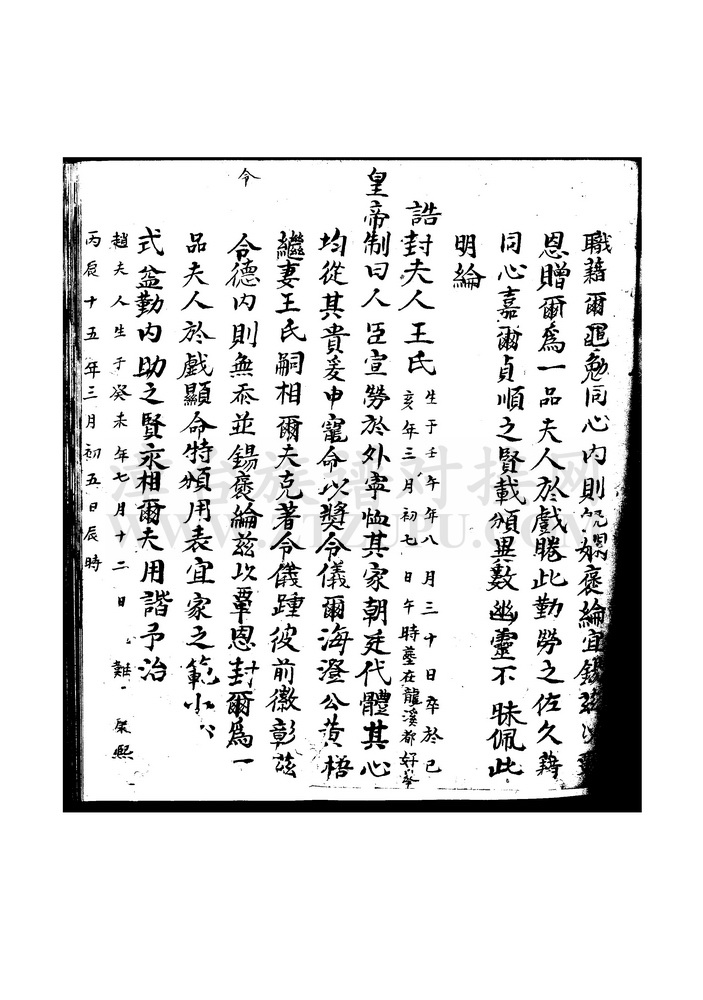 職藉爾黽勉同心內則無媿褒綸宜錫茲以覃
恩贈爾為一品夫人於戲睠此勤勞之佐久藉
同心嘉爾貞順之賢載頒異數幽靈不昧佩此
明綸
誥封夫人王氏
生于壬午年八月三十日卒於己
亥年三月初七日午時墓在龍溪都好峯
皇帝制曰人臣宣勞於外寧恤其家朝廷代體其心
均從其貴爰申寵命以獎令儀爾海澄公黄梧
繼妻王氏嗣相爾夫克著令儀踵彼前徽彰茲
令德內則無忝並錫褒綸茲以覃恩封爾為一
令
品夫人於戲顯命特頒用表宜家之範小心
式益勤內助之賢永相爾夫用諧予治
趙夫人生于癸未年七月十二日難康熙
丙辰十五年三月初五日辰時
漳台族譜对接网